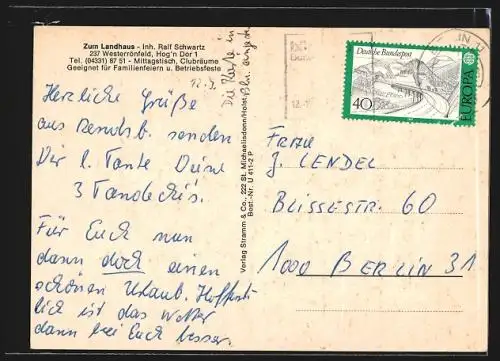 Zum Landhaus - Inh. Ralf Schwartz
237 Westerrönfeld, Hog'n Dor 1
Tel. (04331) 87 51 - Mittagstisch, Clubräume
Geeignet für Familienfeiern u. Betriebsfeste
12.9.
Herzliche Grüße
aus Rendsb. senden
Dir l. Tante Deine
3
Für Euch nun
dann doch einen
schönen Urlaub. Hoffent-
lich ist das Wetter
dann bei Euch besser.
Die Karte in
Bln.
Verlag Stramm & Co., 222 St. Michaelisdonn/Holst.
Best.-Nr. U 411-2 P
Deutsche Bundespost
40
EUROPA
12.
Frau
J. LENDEL
BLISSESTR. 60
1000 BERLIN 31